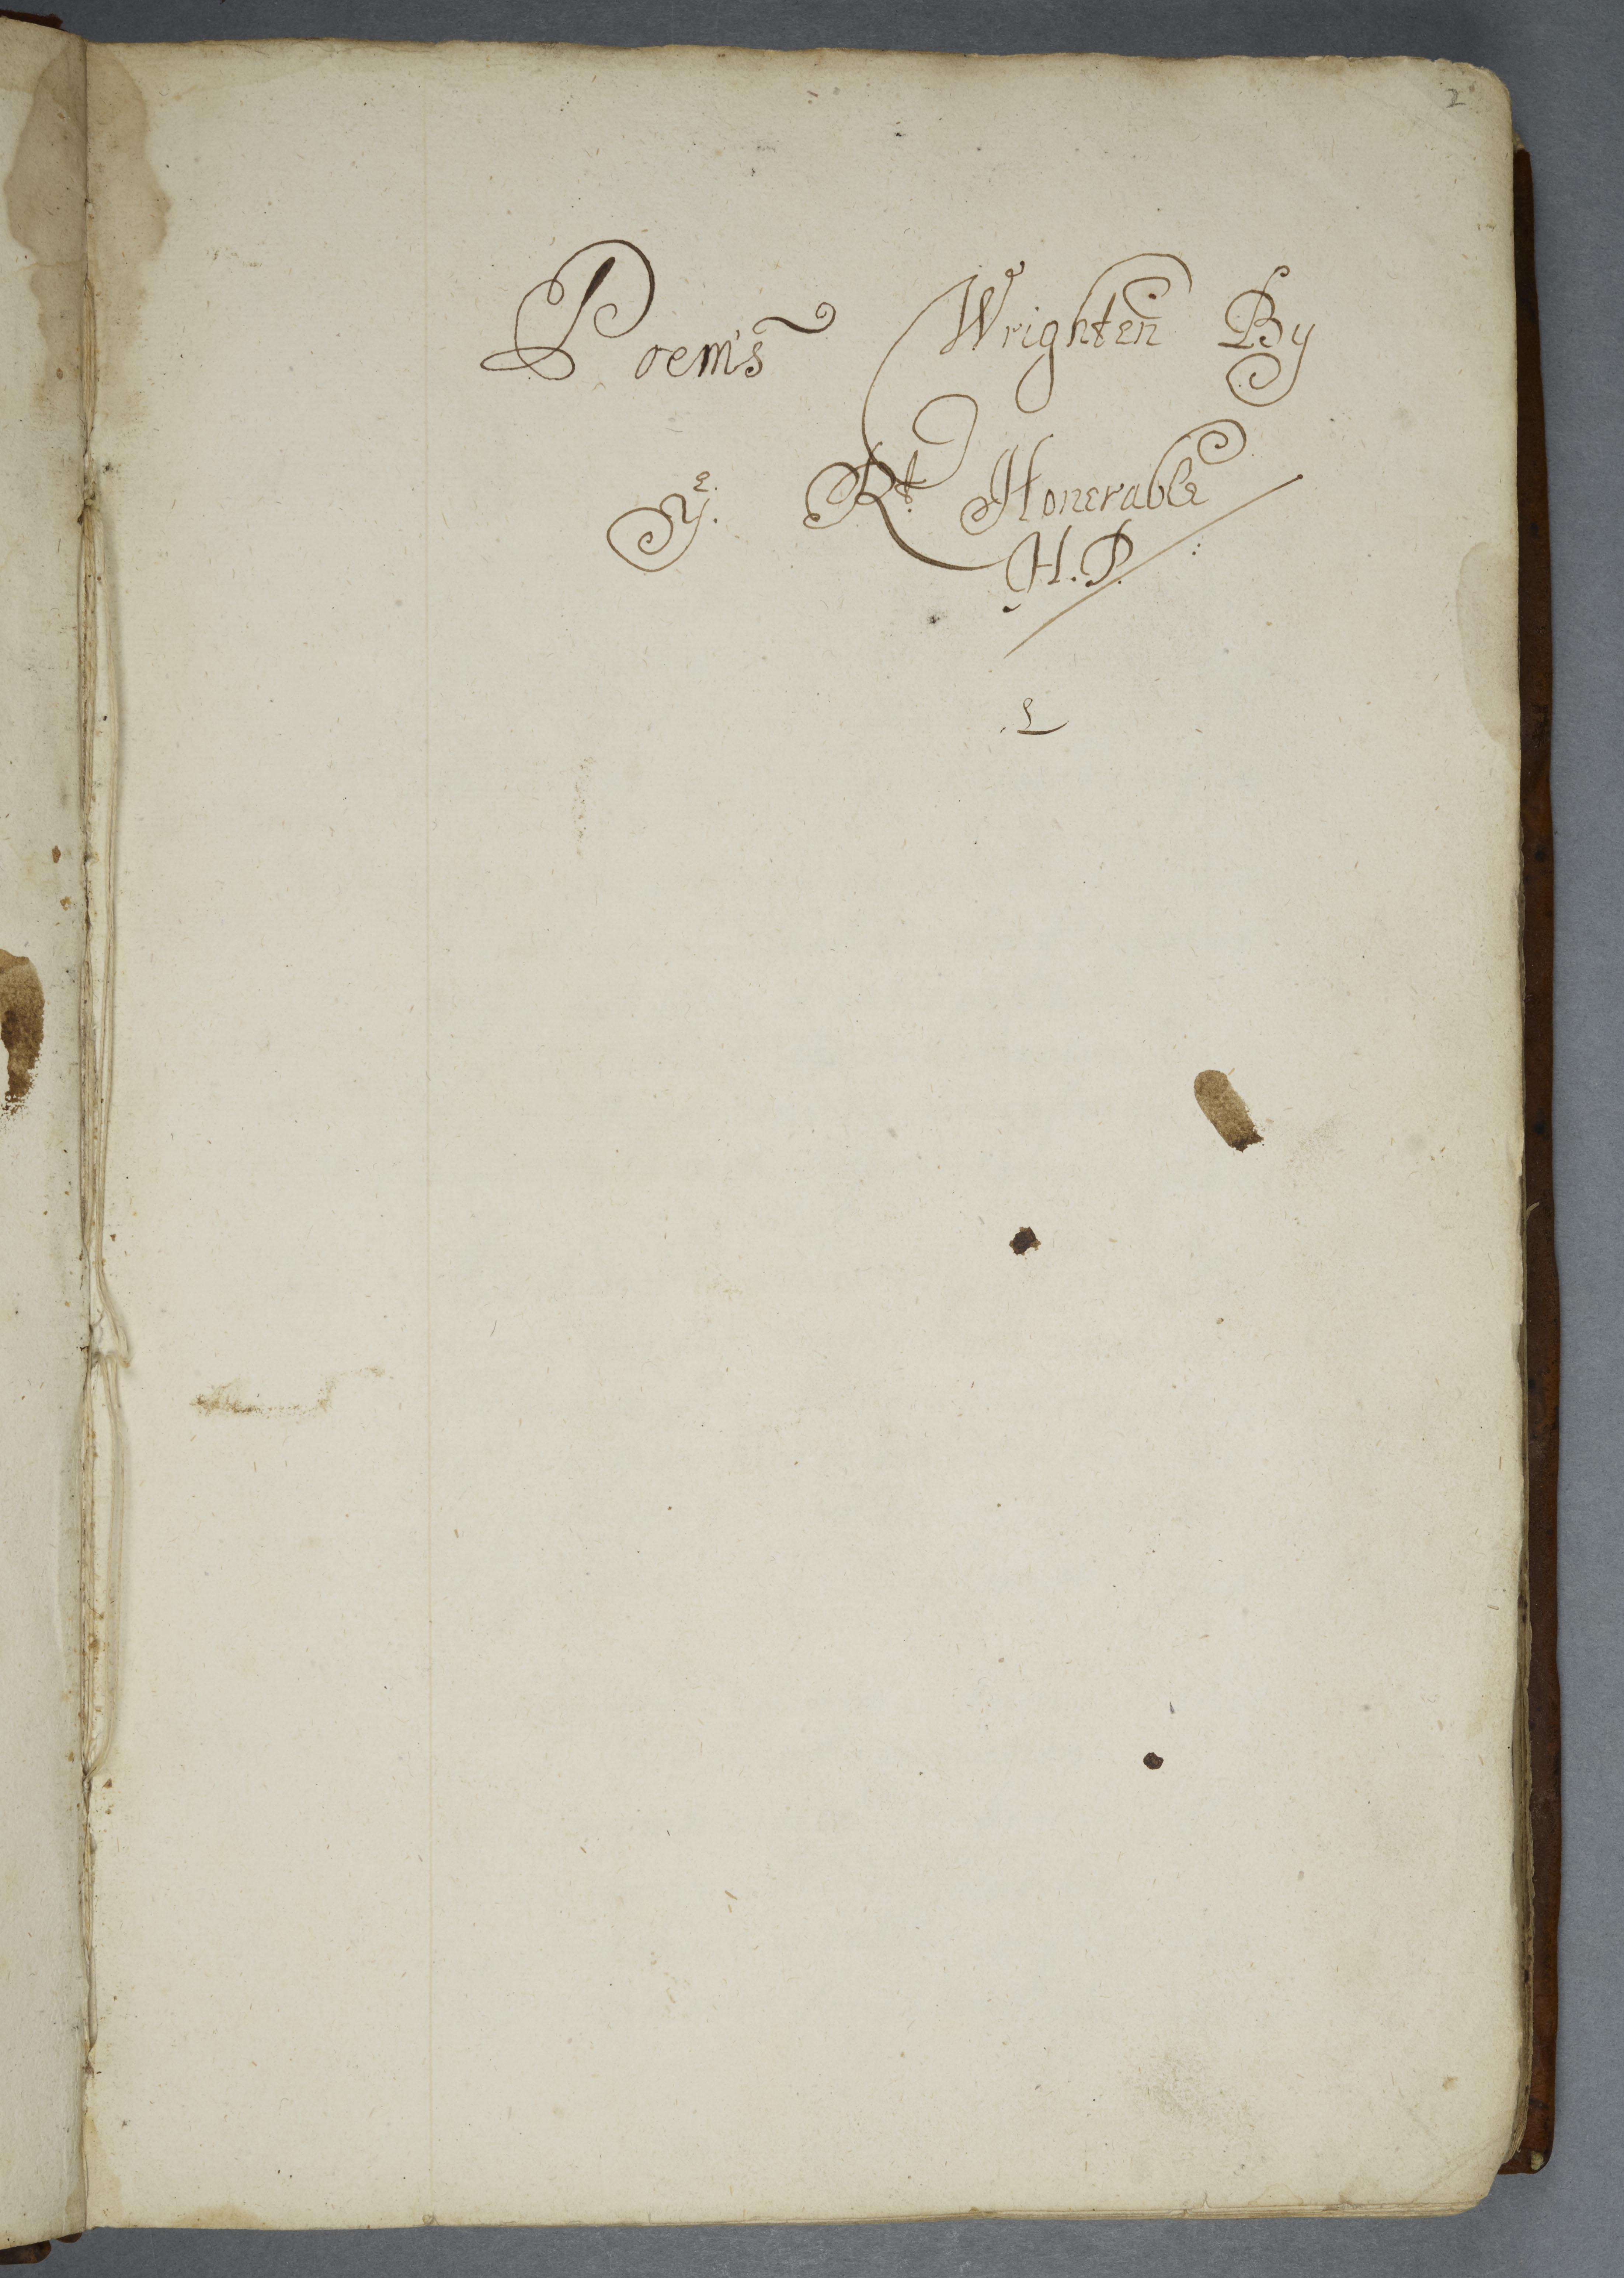 2
Poem's Wrighten By
yᵉ. Rᵗ. Honerable
H.P.